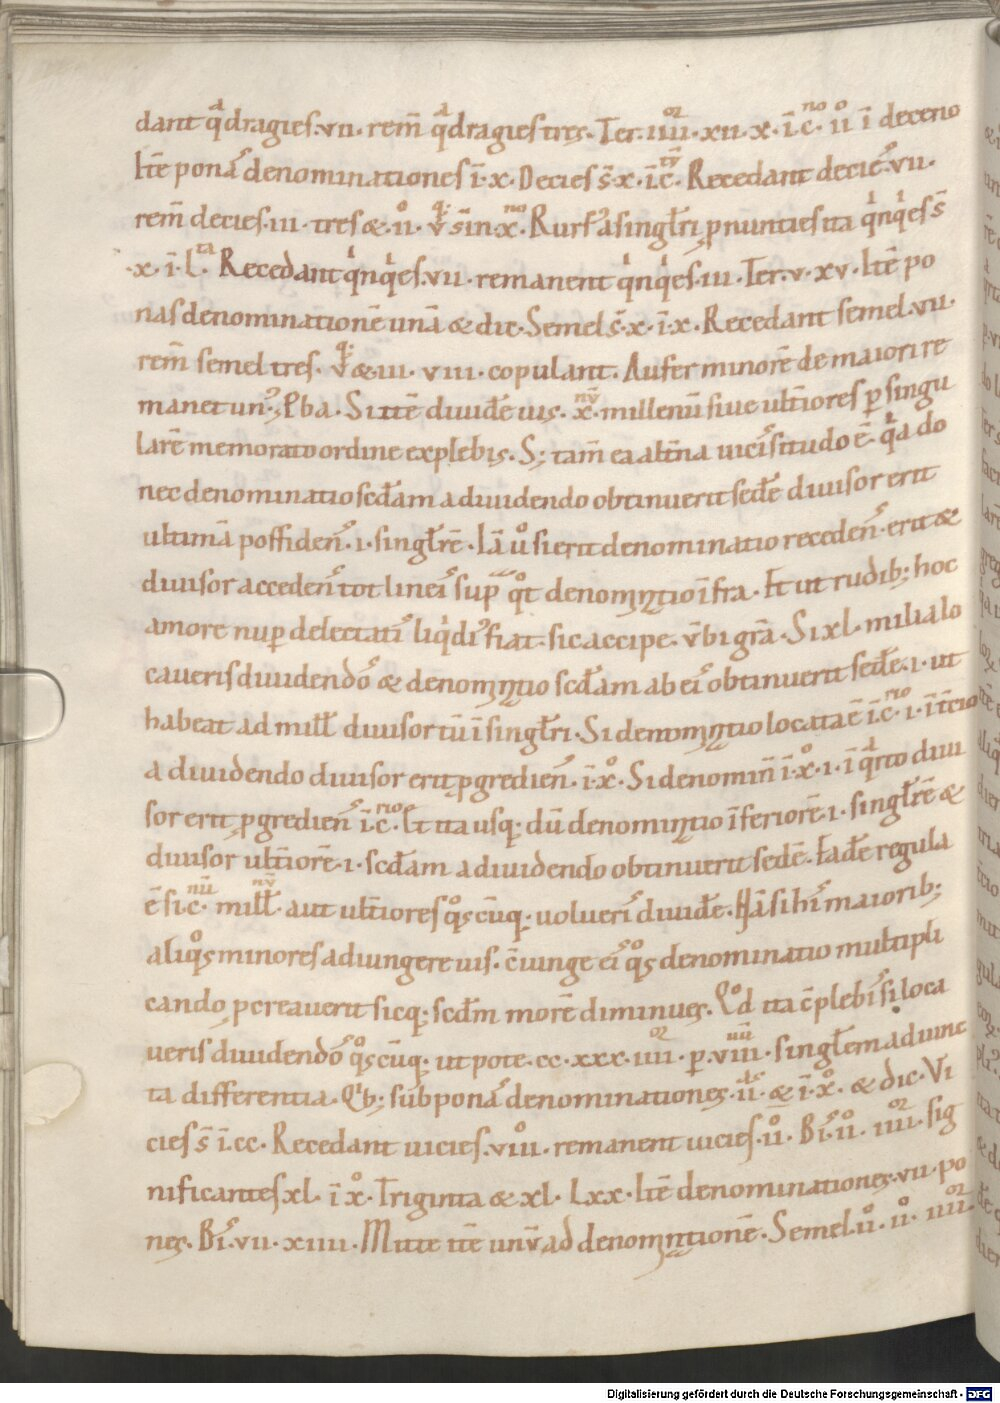 dant q̄dragies .vii. rem̄ q̄dragies tres. Ter .iiii. xii. x. ī .c. ii ī deceno
Itē ponā denominationes ī .x. Decies s̄ .x. ī .c̄. Recedant decies .vii.
rem̄ decies .iii. tres & .ii. v̄ s̄ in .x. Rursus a singl̄ri p̄nunties ita q̍nq̍es s̄
.x. ī .L. Recedant q̍nq̍es .vii. remanent q̍nq̍es .iii. Ter .v. xv. Itē po
nas denominationē unā & dic. Semel s̄ .x. ī .x. Recedant semel .vii.
rem̄ semel tres. v̄ & .iii. viii. copulant. Aufer minorē de maiori re
manet un᷒. Pba. Si itē diuid̄e uis .x. millenū siue ultīores p singu
larē memorato ordine explebis. S; tam̄ ea alt̄na uicissitudo ē. q̍a do
nec denominatio scd̄am a diuidendo obtinuerit sed̄e diuisor erit
ultimā possiden᷒ .i. singl̄rē. Iā ů si erit denominatio receden᷒ erit &
diuisor acceden᷒ tot lineis sup q̊t denominatio īfra. Et ut rudib; hoc
amore nup delectatis liq̍di᷒ fiat. sic accipe. v̄bi gr̄a. Si xl. milia lo
caueris diuidendos & denominatio scd̄am ab eis obtinuerit sed̄e .i. ut
habeat ad mill̄ diuisor tū ī singl̄ri. Si denominatio locata ē ī .c. i. ī t̄cio
a diuidendo diuisor erit p̄gredien᷒ .ī .x̊. Si denomin̄ ī .x̊. i. ī q̄rto diui
sor erit p̄gredien᷒ ī .c. Et ita usq; dū denominatio īferiorē .i. singl̄rē &
diuisor ultīorē .i. scd̄am a diuidendo obtinuerit sedē. Ead̄e regula
ē si .c. mill̄. aut ultīores q̊s cūq; uolueris diuid̄e. Hā si his maiorib;
aliq̊s minores adiungere uis. c̄iunge eis q̊s denominatio multipli
cando p̄creauerit sicq; scd̄m morē diminues. Q̊d ita c̄plebis. si loca
ueris diuidendos q̊s cūq; ut pote .cc. xxx. iiii. p .viii. singl̄em adiunc
ta differentia. Q̍b; subponā denominationes .ii. & ī .x̊. & dic. Vi
cies s̄ ī .cc. Recedant uicies .viii. remanent uicies .ii. Bis .ii. iiii. sig
nificantes xl. ī x̊. Triginta & xl. Lxx. Itē denominationes .vii. po
nes. Bis .vii. xiiii. Mitte itē unū ad denominationē. Semel .ii. ii. iiii.
Digitalisierung gefördert durch die Deutsche Forschungsgemeinschaft - DFG